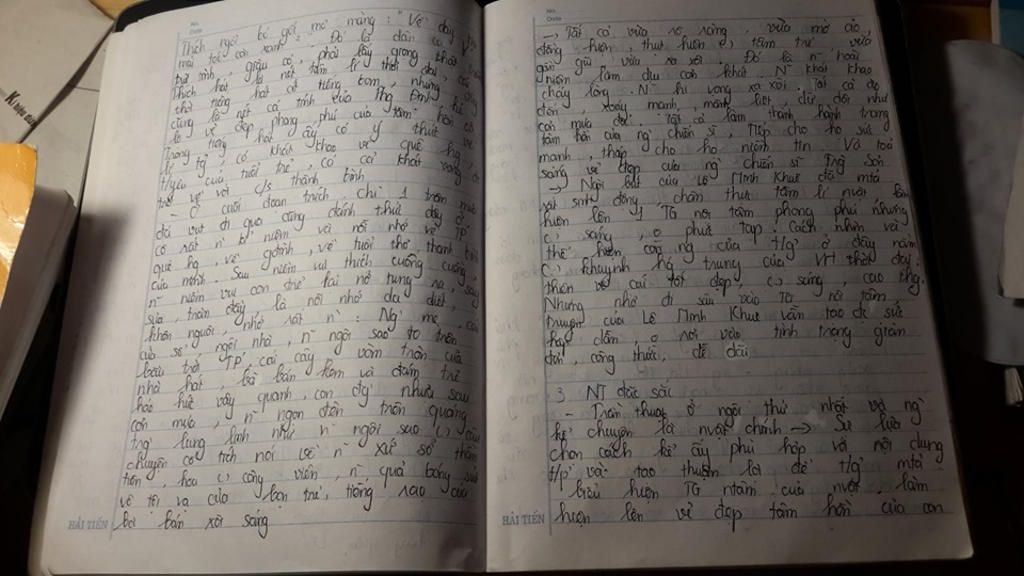 No.
Date
Thích ngồi bó gối mơ màng: "Về đây
mái tóc còn xanh
Đó là dân ca Ý
trữ tình, giàu có, phải lấy giọng thật
thích hát là nét tâm lí thời đại
thời kháng hát át tiếng bom nhưng
cũng là nét cá tính của Phg Định
lộ vẻ đẹp phong phú của tâm hồn cô
Trong tiếng hát ấy có ý thức về
lí tg, có khát khao về quê hg,
t/yêu của tuổi trẻ, có cả khát vọng
trở về với c/s thanh bình
- Ở cuối đoạn trích chỉ 1 trận mưa
đá vụt đi qua cũng đánh thức dậy ở
có rất n` kỉ niệm và nỗi nhớ về TP,
quê hg, về gđình, về tuổi thơ thanh bình
của mình. Sau niềm vui thích cuống cuồng,
n` niềm vui con trẻ lại nở tung ra, say
sưa, tràn đầy là nỗi nhớ da diết,
khôn nguôi, nhớ rất n`: Ng` mẹ, cái
cửa sổ, ngôi nhà, n` ngôi sao to trên
bầu trời TP, cái cây, vòm tròn của
nhà hát, bà bán kem và đám trẻ
háo hức vây quanh, con đg` nhựa sau
cơn mưa, n` ngọn điện trên quảng
trg` lung linh như n` ngôi sao () câu
chuyện cổ tích nói về n` xứ sở thần
tiên, hoa () công viên, n` quả bóng sút
vô tội vạ của bọn trẻ, tiếng rao của
bà bán xôi sáng
HẢI TIẾN
No.
Date
→ Tất cả vừa rõ ràng, vừa mờ ảo,
đồng hiện, thực hiện tâm trí, vừa
gần gũi vừa xa xôi. Đó là n` hoài
niệm làm dịu cơn khát. N` khát khao
cháy lòng. N` hi vọng xa xôi. Tất cả ào
đến, xoáy mạnh, mãnh liệt, dữ dội như
cơn mưa đá. Tất cả làm thành hành trang
tâm hồn của ng` chiến sĩ, tiếp cho họ sức
mạnh, thắp cho họ niềm tin và toả
sáng vẻ đẹp của ng` chiến sĩ Trg Sơn
→ Ngòi bút của Lê Minh Khuê đã mtả
rất sinh động, chân thực tâm lí nvật làm
hiện lên 1 TG nội tâm phong phú nhưng
() sáng, o phức tạp. Cách nhìn và
thể hiện con ng của t/g ở đây nằm
() khuynh hg trung của VH thời đại:
thiên về cái tốt đẹp, () sáng, cao thg.
Nhưng nhờ đi sâu vào TG nội tâm,
truyện của Lê Minh Khuê vẫn tạo đc sức
hấp dẫn, o rơi vào tình trạng giản
đơn, công thức, dễ dãi
3. NT đặc sắc
- Trần thuật ở ngôi thứ nhất và ng`
kể chuyện là nvật chính → Sự lựa
chọn cách kể ấy phù hợp với nội dung
t/p` và tạo thuận lợi để t/g mtả
biểu hiện TG ntâm của nvật, làm
hiện lên vẻ đẹp tâm hồn của con
HẢI TIẾN